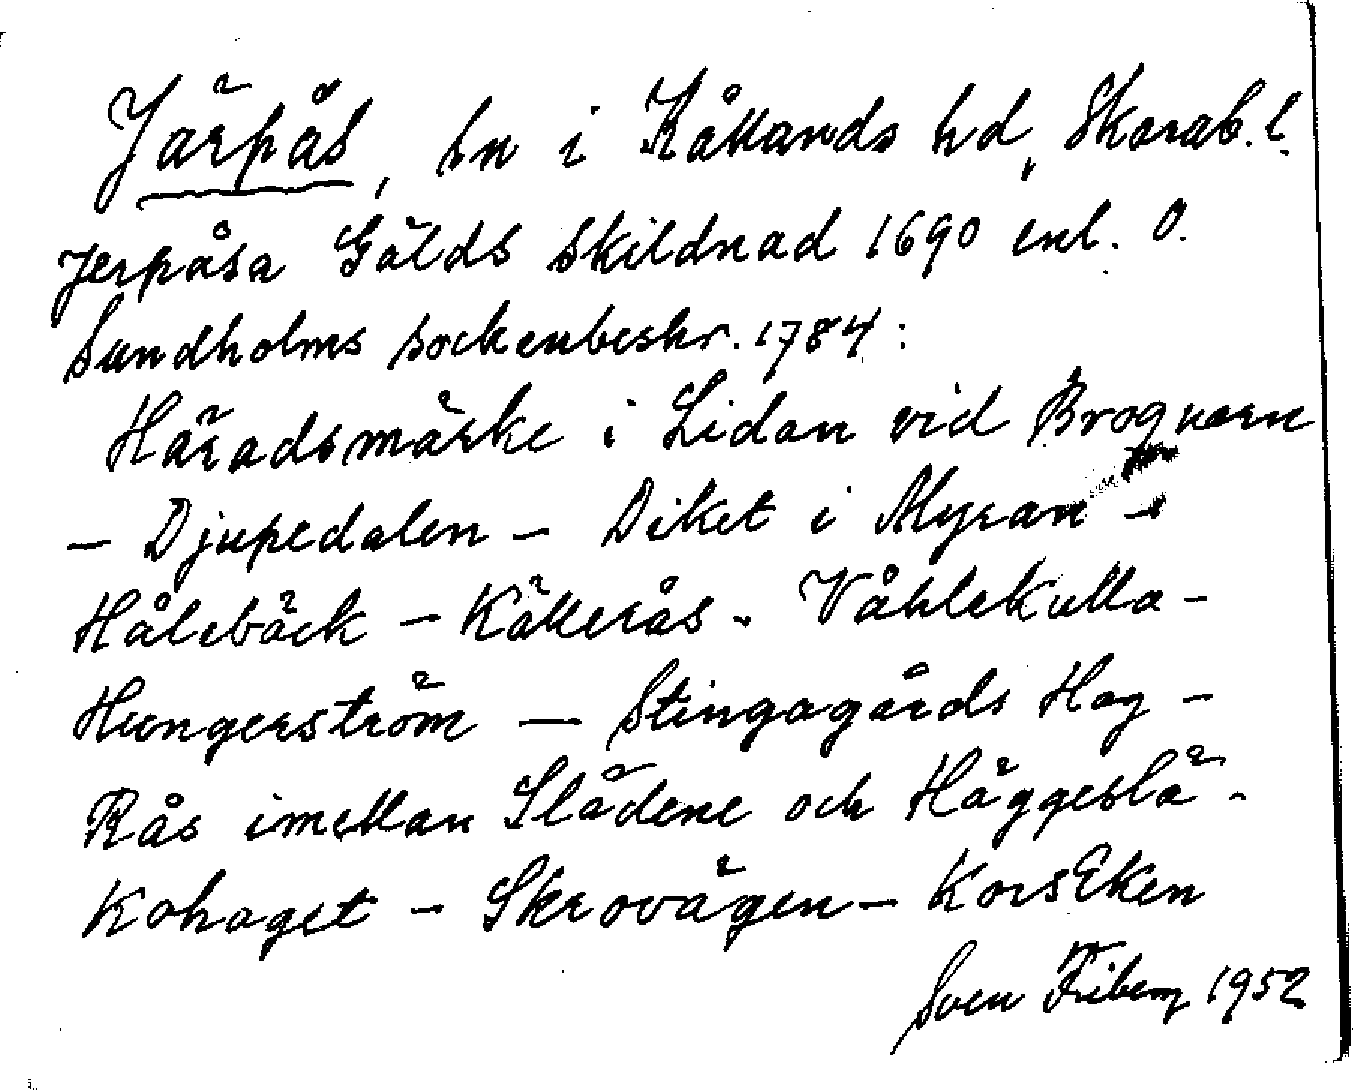 Järpås, sn i Kållands hd, Skarab. l.
Jerpåsa Gälds Skildnad 1690 enl. O.
Sundholms sockenbeskr. 1784:
Häradsmärke i Lidan vid Broqvarn
– Djupedalen – Diket i Myran –
Hålebäck – Källerås – Våhlekulla –
Hungerström – Stingagårds Hag –
Rås imellan Slädene och Häggeslä –
Kohaget – Skrovägen – KorsEken
Sven Friberg 1952